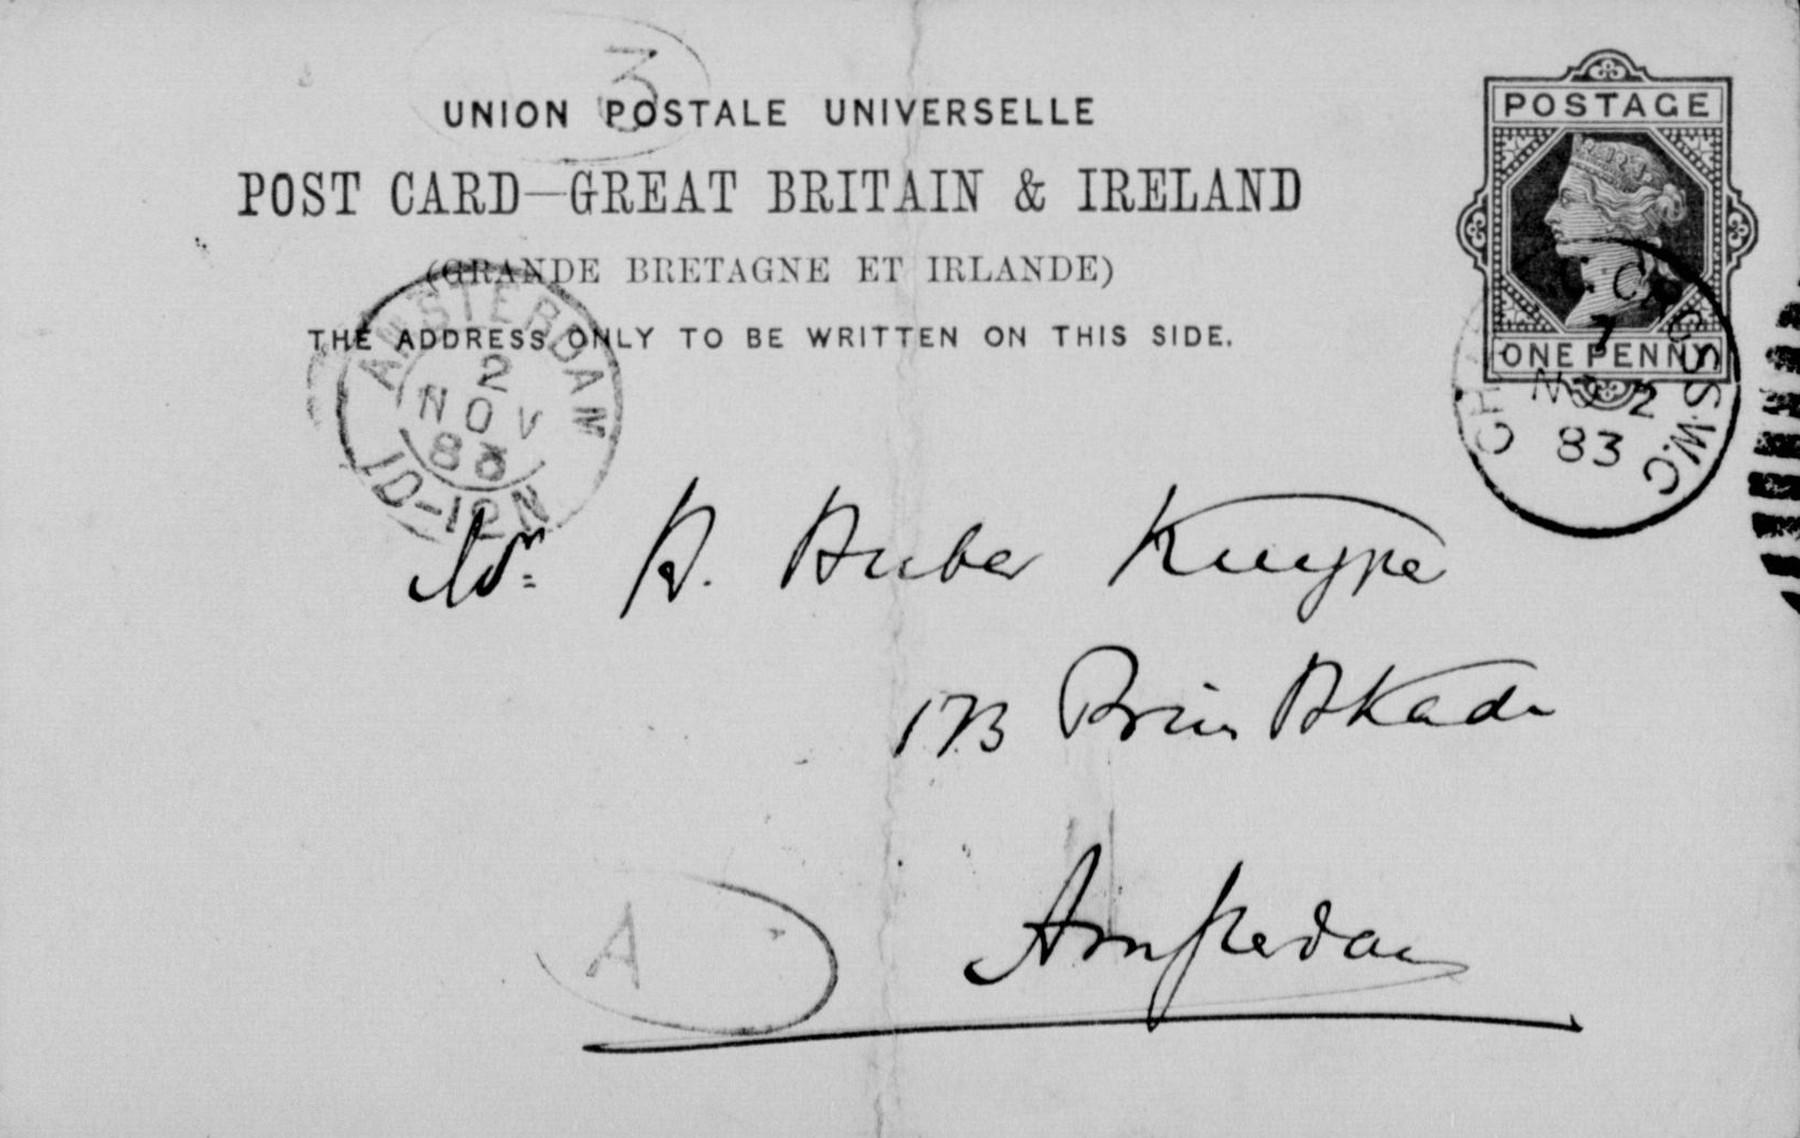 3
UNION POSTALE UNIVERSELLE
POSTAGE
POST CARD—GREAT BRITAIN & IRELAND
(GRANDE BRETAGNE ET IRLANDE)
THE ADDRESS ONLY TO BE WRITTEN ON THIS SIDE.
ONE PENNY
AMSTERDAM
2
NOV
83
10-12N
CHARING CROSS·W.C
7
NO 2
83
Kuyper
173
Amsterdam
A